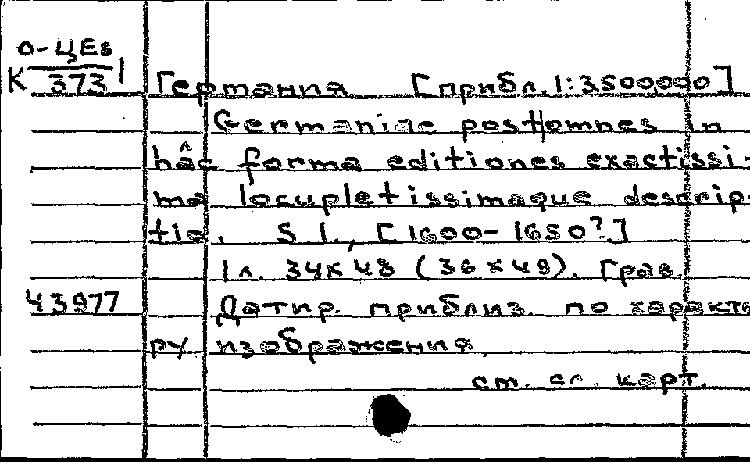 О-ЦЕв
К 373 1
Германия [прибл. 1:3500000]
Germaniae post omnes in
hâc forma editiones exactissi-
ma locupletissimaque descrip-
tio. S. l., [1600-1650?]
1 л. 34х48 (36х49). Грав.
43977 Датир. приблиз. по характе-
ру изображения.
см. сл. карт.